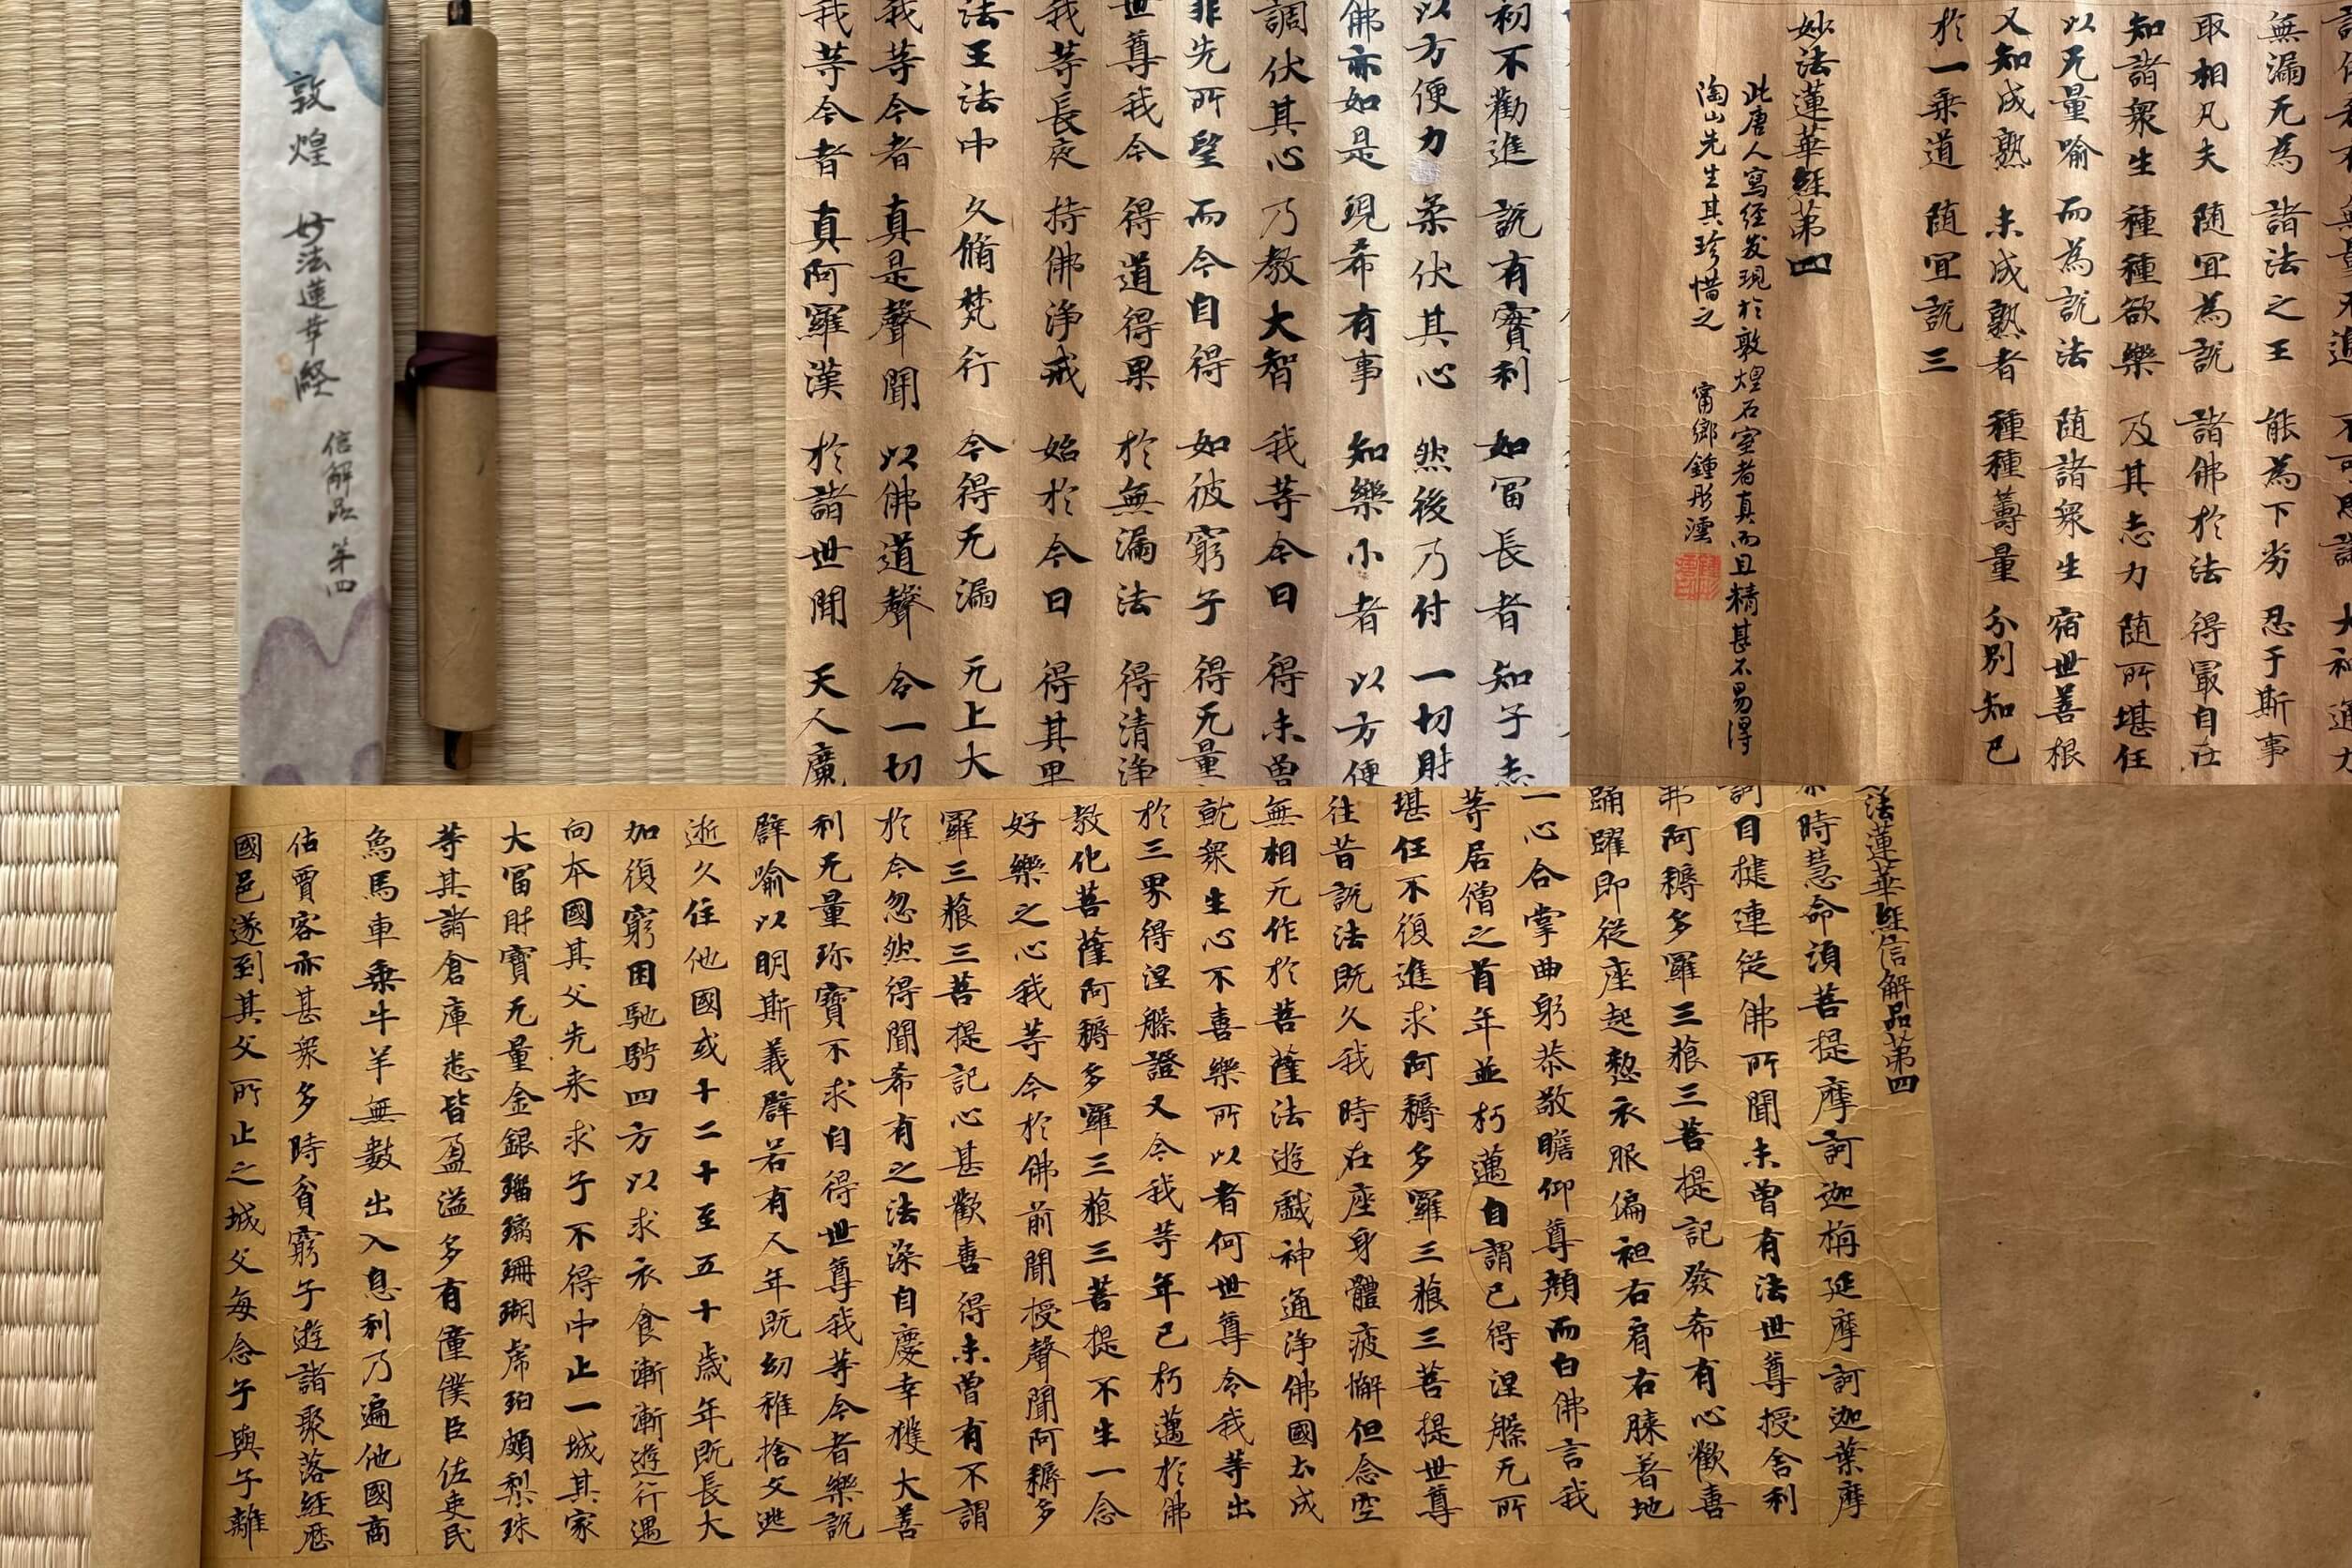 敦煌 妙法蓮華経
信解品 第四
初不勸進 說有寶利 如冨長者 知子志
以方便力 柔伏其心 然後乃付 一切財
佛亦如是 現希有事 知樂小者 以方便
調伏其心 乃教大智 我等今日 得未曾
非先所望 而今自得 如彼窮子 得无量
世尊我今 得道得果 於無漏法 得清淨
我等長夜 持佛淨戒 始於今日 得其果
法王法中 久脩梵行 今得无漏 无上大
我等今者 真是聲聞 以佛道聲 令一切
我等今者 真阿羅漢 於諸世間 天人魔
無漏无為 諸法之王 能為下劣 忍于斯事
取相凡夫 随宜為說 諸佛於法 得冣自在
知諸衆生 種種欲樂 及其志力 随所堪任
以无量喻 而為說法 随諸衆生 宿世善根
又知成熟 未成熟者 種種籌量 分別知已
於一乘道 随宜說三
妙法蓮華經第四
此唐人寫经发現於敦煌石室者真而且精甚不易得
陶山先生其珍惜之 甯鄉鍾彤澐
法蓮華經信解品第四
尒時慧命湏菩提摩訶迦栴延摩訶迦葉摩
訶目揵連從佛所聞未曾有法世尊授舍利
弗阿耨多羅三藐三菩提記發希有心歡喜
踊躍即從座起整衣服偏袒右肩右膝著地
一心合掌曲躬恭敬瞻仰尊顏而白佛言我
等居僧之首年並朽邁自謂已得涅槃无所
堪任不復進求阿耨多羅三藐三菩提世尊
往昔說法既久我時在座身體疲懈但念空
無相无作於菩薩法遊戲神通淨佛國土成
就衆生心不喜樂所以者何世尊令我等出
於三界得涅槃證又令我等年已朽邁於佛
教化菩薩阿耨多羅三藐三菩提不生一念
好樂之心我等今於佛前聞授聲聞阿耨多
羅三藐三菩提記心甚歡喜得未曾有不謂
於今忽然得聞希有之法深自慶幸獲大善
利无量珎寶不求自得世尊我等今者樂說
譬喻以明斯義譬若有人年既幼稚捨父逃
逝久住他國或十二十至五十歲年既長大
加復窮困馳騁四方以求衣食漸漸遊行遇
向本國其父先来求子不得中止一城其家
大冨財寶无量金銀瑠璃珊瑚虎珀頗梨珠
等其諸倉庫悉皆盈溢多有僮僕臣佐吏民
鳥馬車乗牛羊無數出入息利乃遍他國商
估賈客亦甚衆多時貧窮子遊諸聚落經歷
國邑遂到其父所止之城父每念子與子離